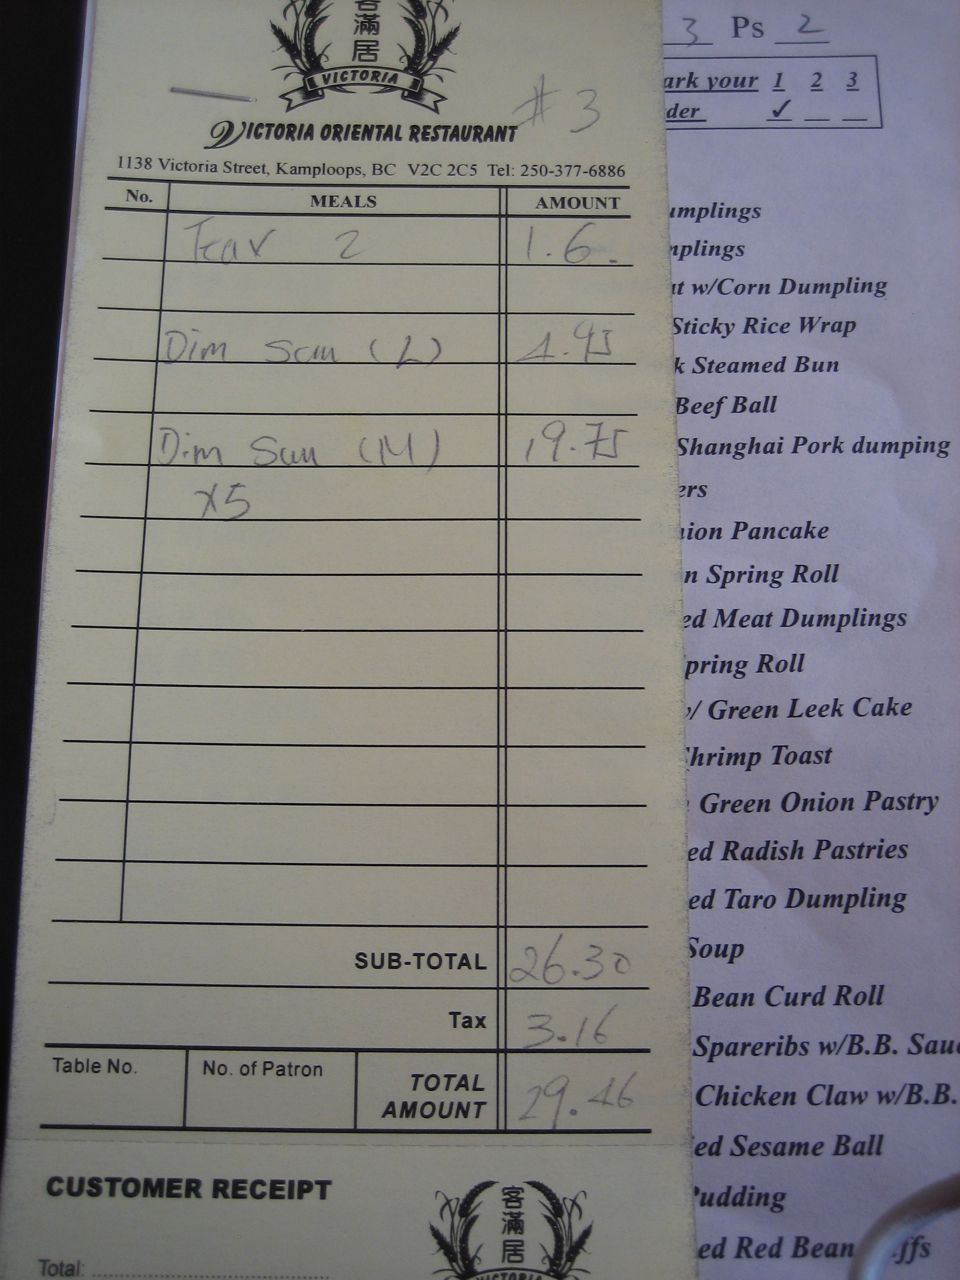 客
滿
居
VICTORIA
# 3
VICTORIA ORIENTAL RESTAURANT
1138 Victoria Street, Kamploops, BC V2C 2C5 Tel: 250-377-6886
No. MEALS AMOUNT
2 1.6
Dim Sum (L) 4.95
Dim Sum (M) 19.75
x5
SUB-TOTAL 26.30
Tax 3.16
Table No. No. of Patron TOTAL AMOUNT 29.46
CUSTOMER RECEIPT
客
滿
居
VICTORIA
Total:
3 Ps 2
ark your 1 2 3
der ✓
umplings
mplings
at w/Corn Dumpling
Sticky Rice Wrap
k Steamed Bun
Beef Ball
Shanghai Pork dumping
ers
nion Pancake
n Spring Roll
ed Meat Dumplings
pring Roll
w/ Green Leek Cake
Shrimp Toast
Green Onion Pastry
ed Radish Pastries
ed Taro Dumpling
Soup
Bean Curd Roll
Spareribs w/B.B. Sau
Chicken Claw w/B.B.
ied Sesame Ball
Pudding
ed Red Bean ffs